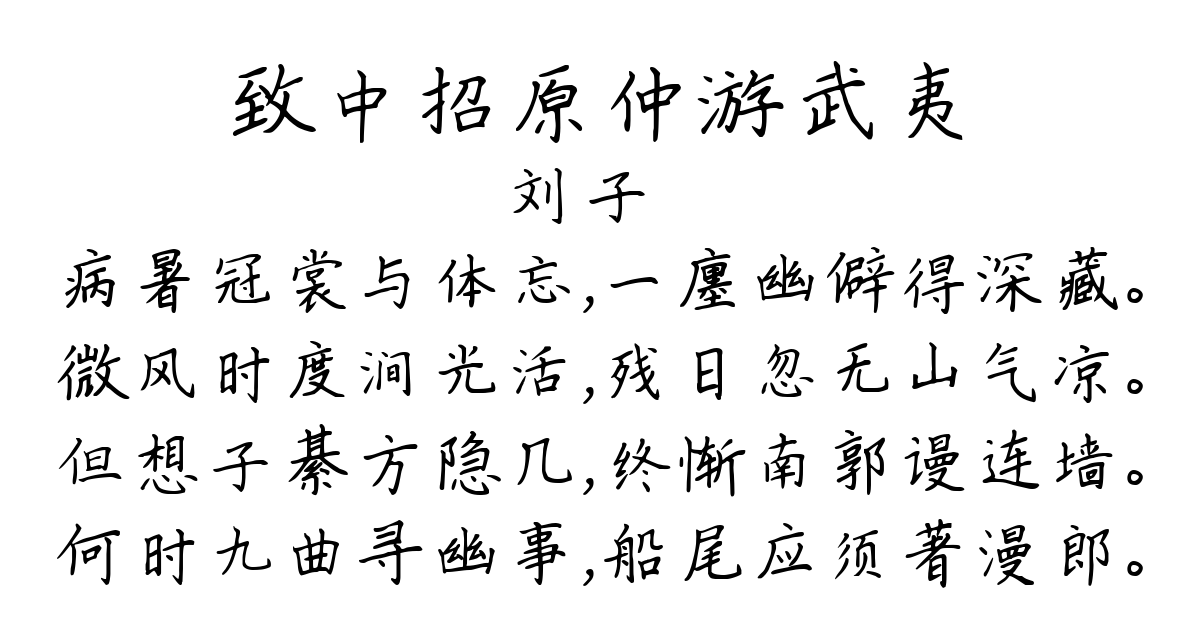 致中招原仲游武夷
刘子
病暑冠裳与体忘,一廛幽僻得深藏。
微风时度涧光活,残日忽无山气凉。
但想子綦方隐几,终惭南郭谩连墙。
何时九曲寻幽事,船尾应须著漫郎。